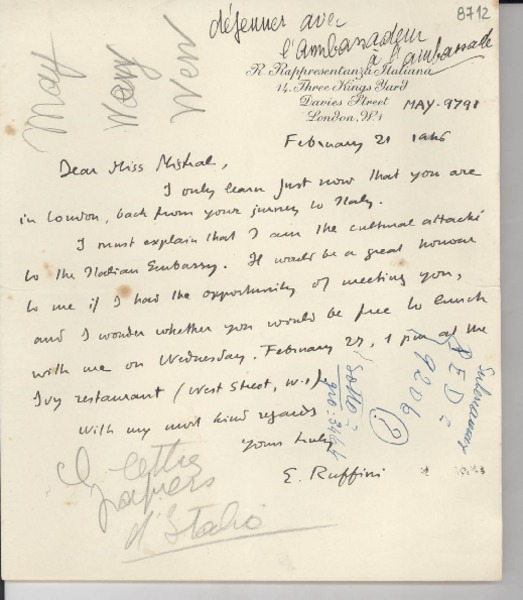 8712
déjeuner avec
l'ambassadeur
à l'ambassade
May
Wen
R. Rappresentanza Italiana
14. Three Kings Yard
Davies Street
London, W.1
MAY. 9791
February 21 1946
Dear Miss Mistral,
I only learn just now that you are
in London, back from your jurney to Italy.
I must explain that I am the cultural attaché
to the Italian Embassy. It would be a great honour
to me if I had the opportunity of meeting you,
and I wonder whether you would be free to lunch
with me on Wednesday. February 27, 1 pm at the
Ivy restaurant (West Street, W.1).
With my most kind regards
Yours truly
E. Ruffini
9206
?
lettre
papiers
d'Italie